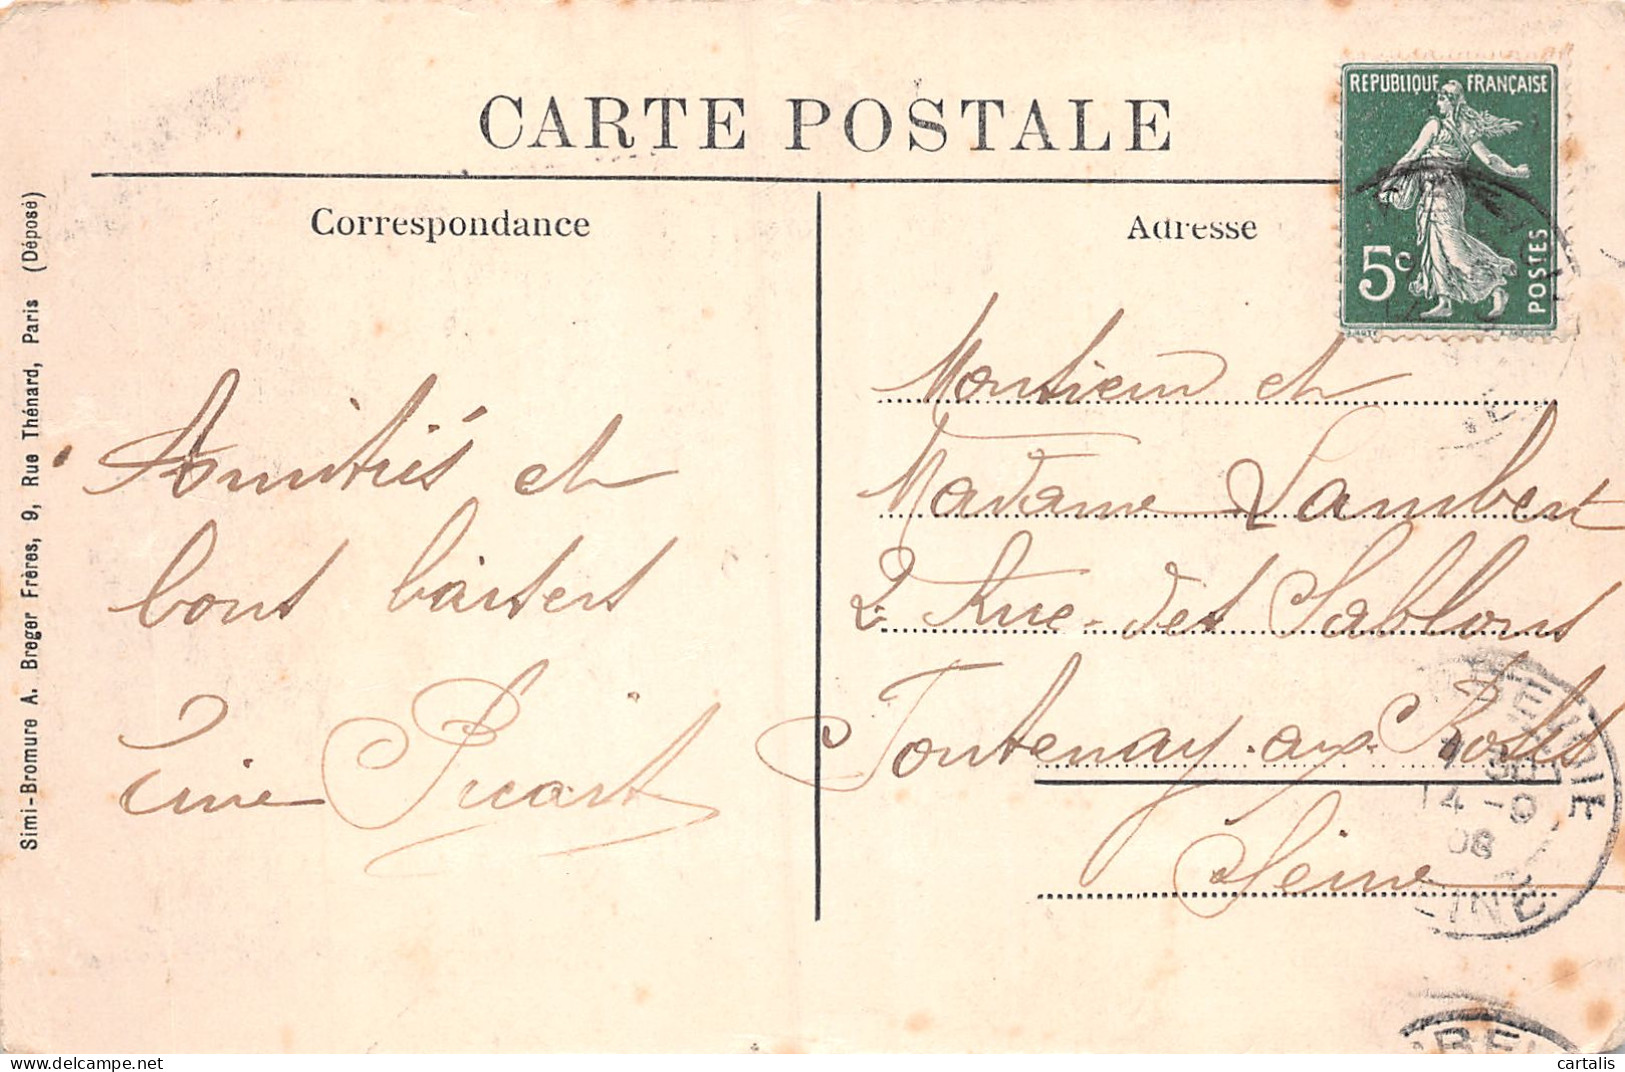 CARTE POSTALE
Correspondance
Adresse
REPUBLIQUE FRANÇAISE
5c
POSTES
Simi-Bromure A. Breger Frères, 9, Rue Thénard, Paris (Déposé)
Amitiés et
bons baisers
Picart
Monsieur et
Madame Lambert
2 Rue des Sablons
Fontenay-aux-Roses
Seine
14 -9
08
cartalis